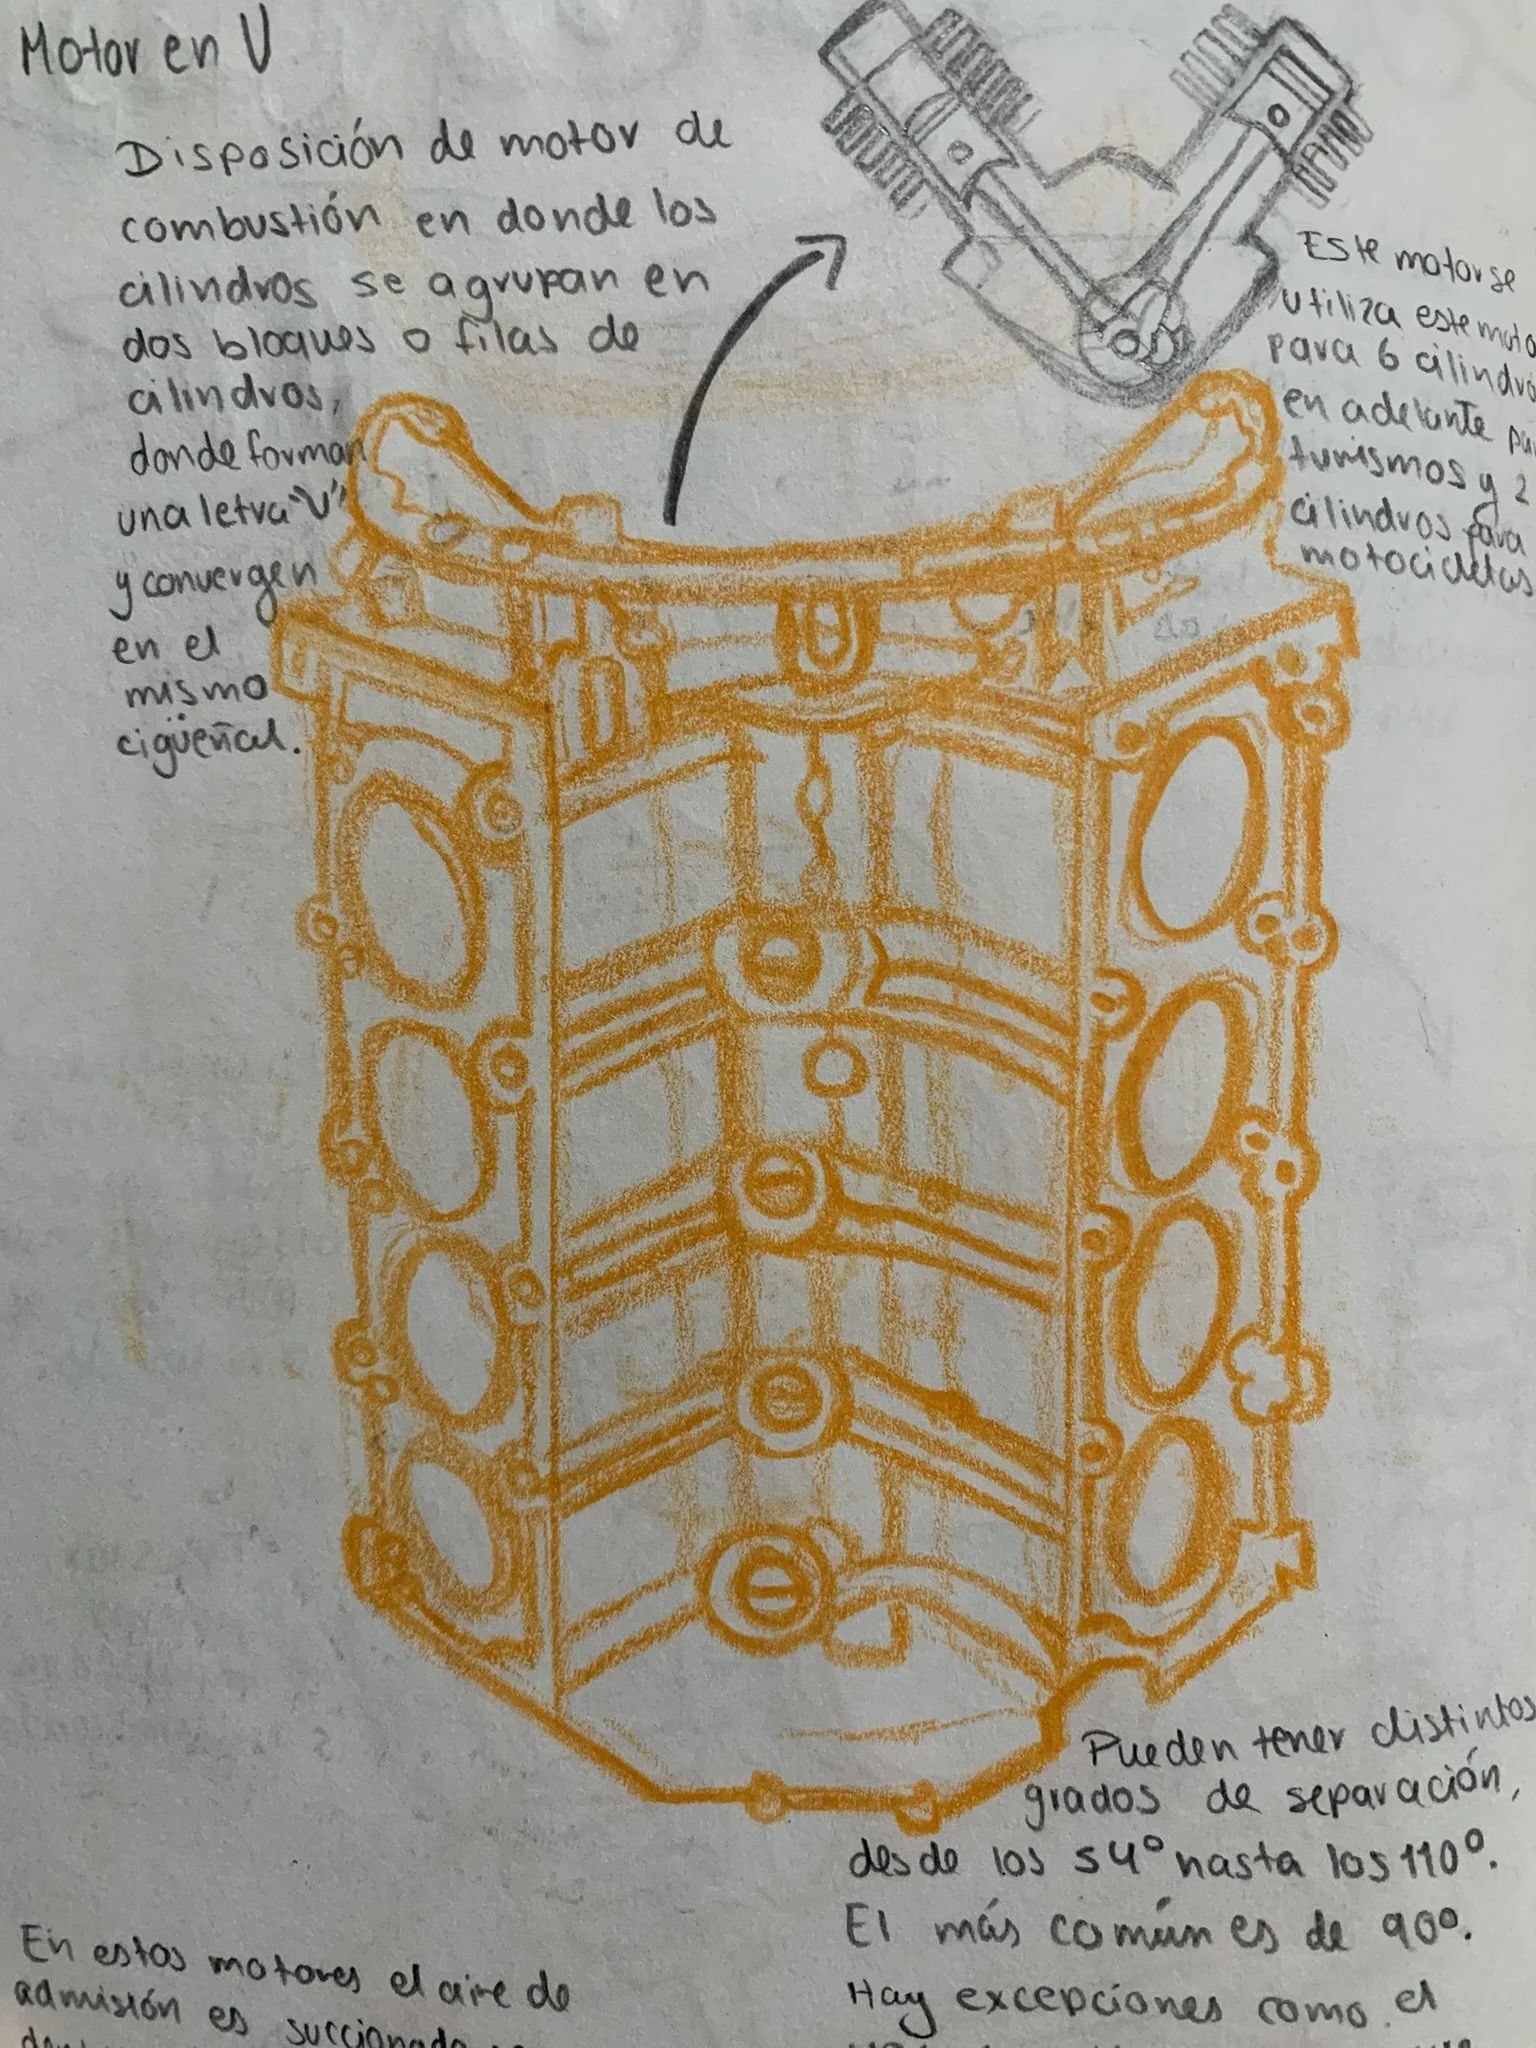 Motor en V
Disposición de motor de
combustión en donde los
cilindros se agrupan en
dos bloques o filas de
cilindros,
donde forman
una letra "V"
y convergen
en el
mismo
cigüeñal.
Este motor se
utiliza este moto
para 6 cilindro
en adelante pa
turismos y 2
cilindros para
motocicletas
Pueden tener distintos
grados de separación,
desde los 54° hasta los 110°.
El más común es de 90°.
Hay excepciones como el
En estos motores el aire de
admisión es succionado